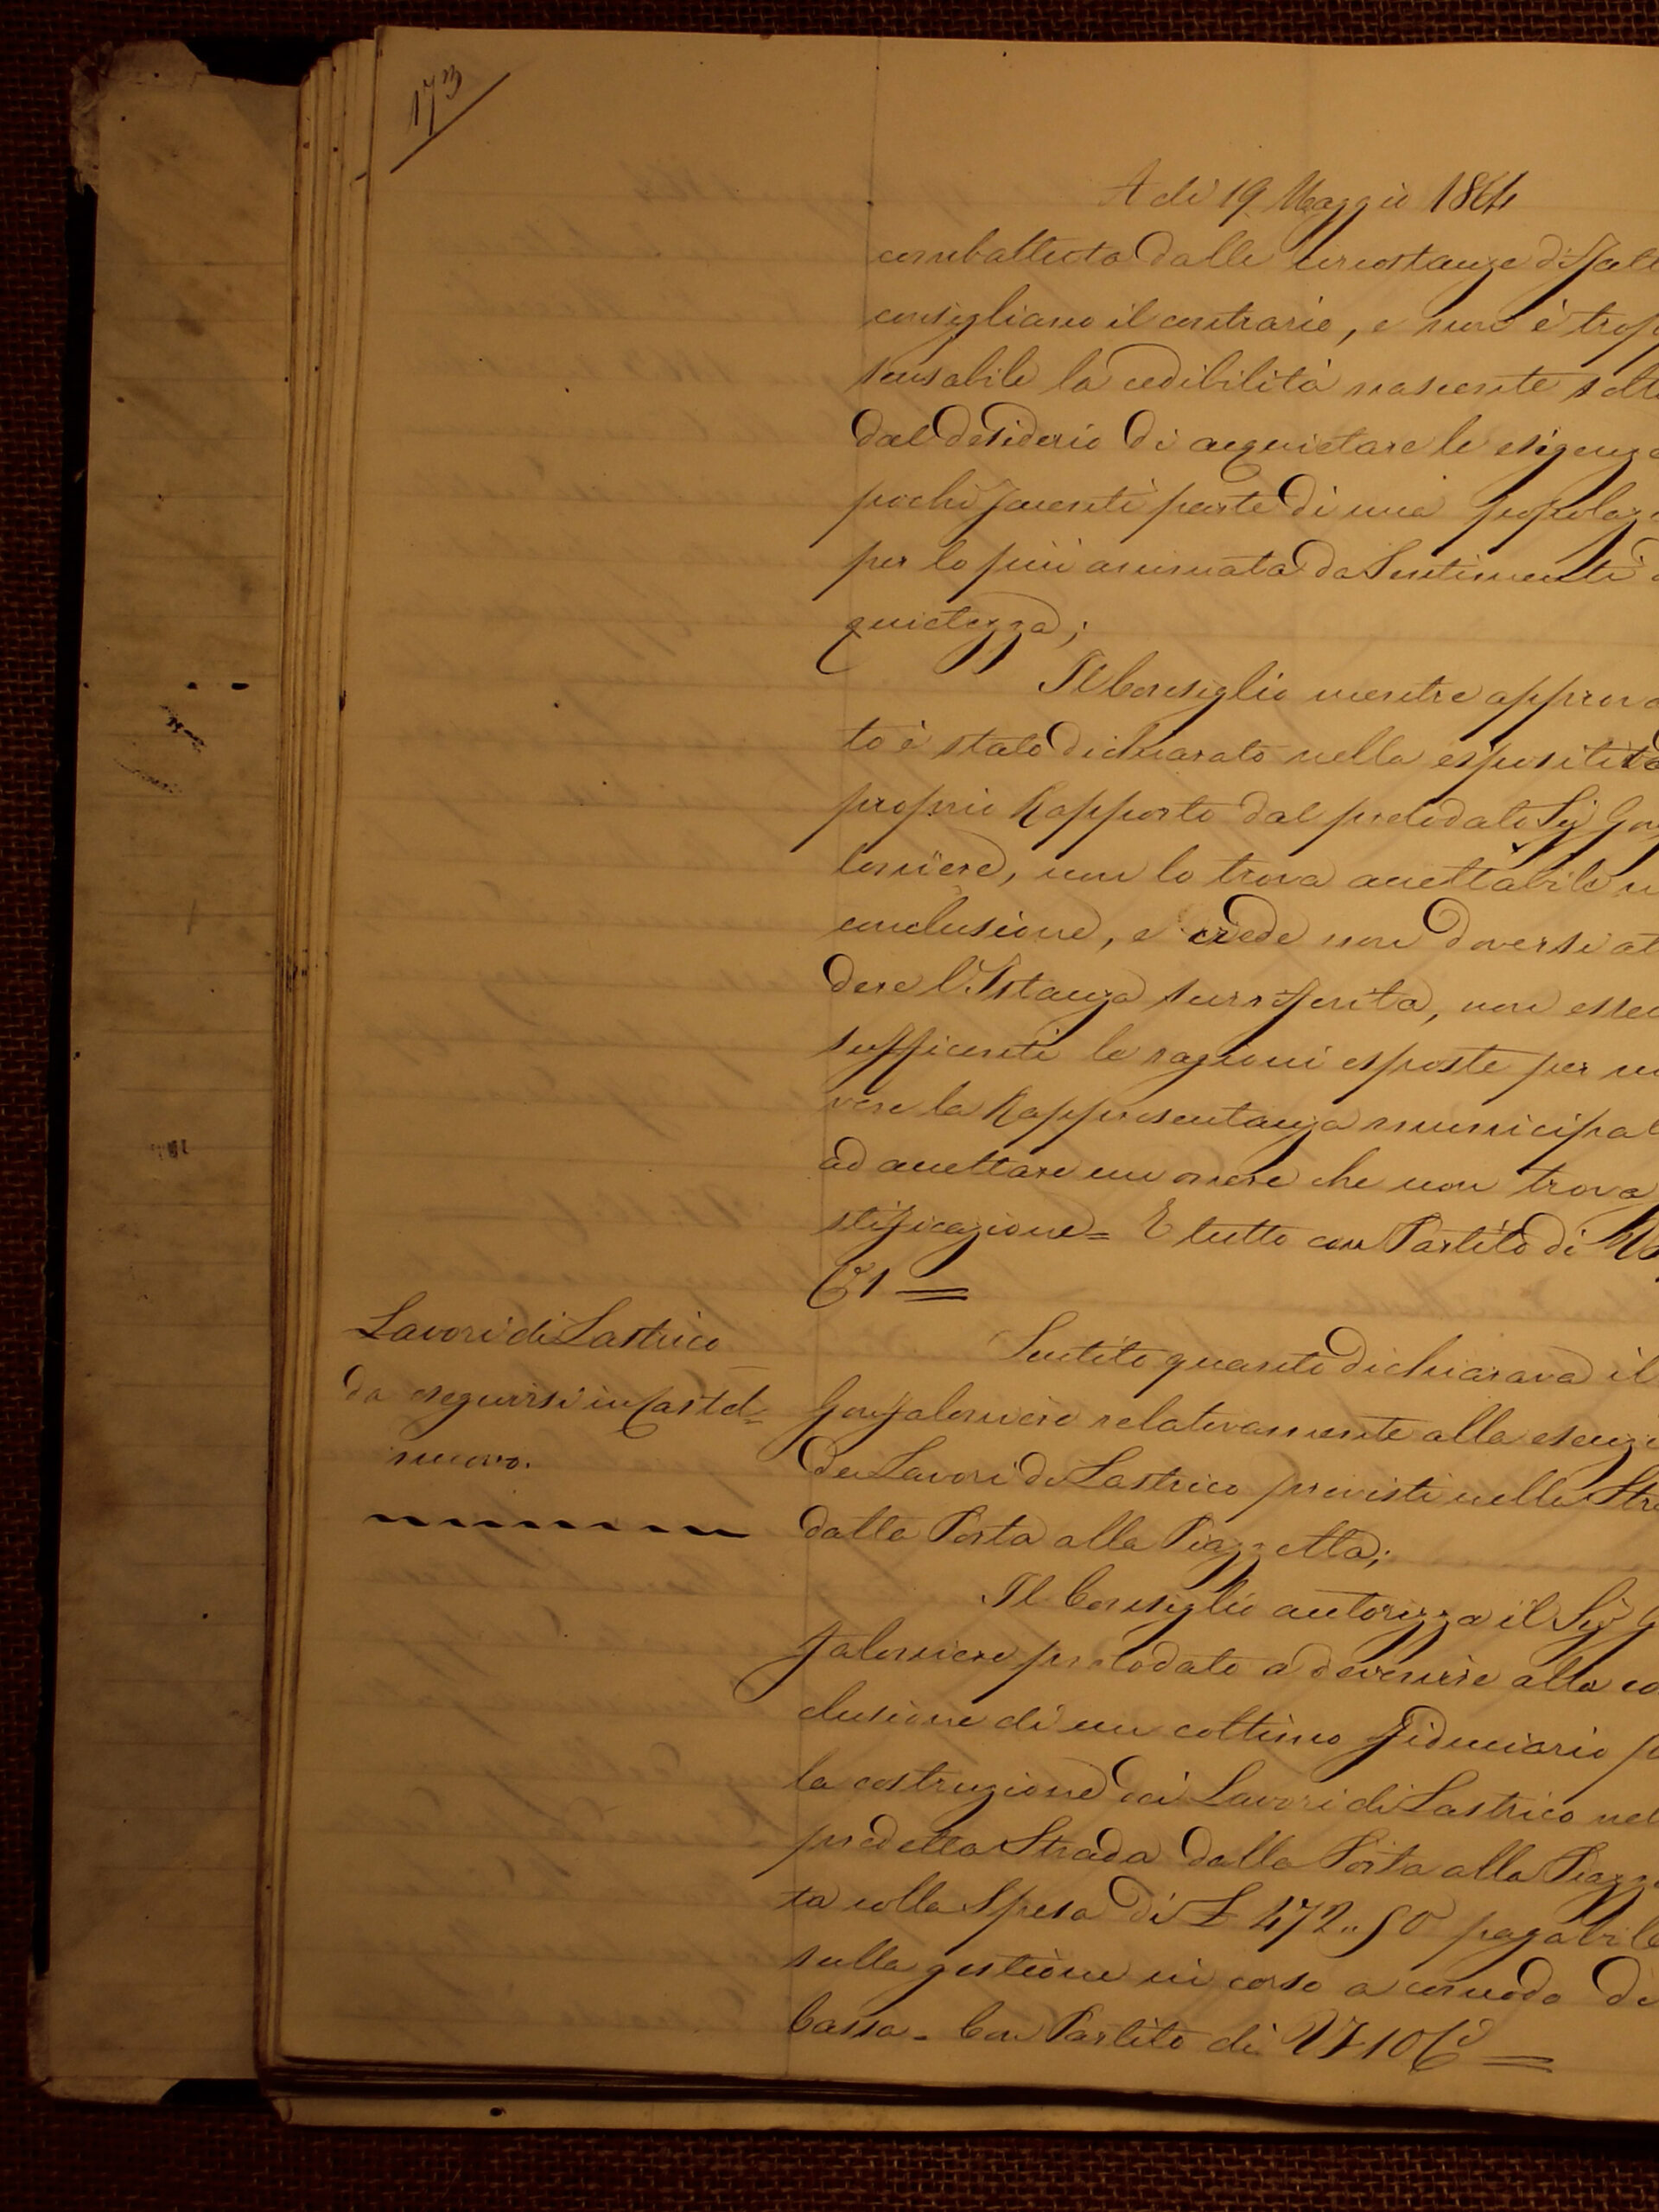 173
A dì 19 Maggio 1864
combattuta dalle circostanze di fatt
consigliano il contrario, e non è trop
sensabile la cedibilità nascente solt
dal desiderio di acquietare le esigenz
pochi facenti parte di una popolaz
per lo più animata da Sentimenti
quietezza;
Il Consiglio mentre approva
to è stato dichiarato nella espositiva
proprio Rapporto dal prelodato Sig Gon
loniere, non lo trova accettabile n
conclusione, e crede non doversi at
dere l'Istanza surriferita, non essen
sufficenti le ragioni esposte per m
vere la Rappresentanza municipal
ad accettare un onere che non trova
stificazione = E tutto con Partito di
C 1 =
Lavori di Lastrico
da eseguirsi in Castel=
nuovo.
Sentito quanto dichiarava il
Gonfaloniere relativamente alla esecuz
dei Lavori di Lastrico previsti nella Stra
dalla Porta alla Piazzetta;
Il Consiglio autorizza il Sig G
faloniere prelodato a devenire alla co
clusione di un cottimo fiduciario p
la costruzione dei Lavori di Lastrico nel
predetta Strada dalla Porta alla Piazz
ta colla Spesa di £ 472.. 50 pagabile
sulla gestione in corso a comodo di
Cassa - Con Partito di VF 10 C =